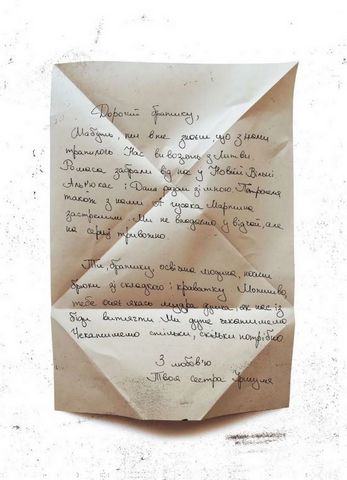 Дорогий братику,
Мабуть, ти вже знаєш, що з нами
трапилось. Нас вивозять з Литви.
Ромаса забрали від нас у Новій Вільні
Альґіс і Дана разом зі мною. Петроеля
також з нами. А гусака Мартина
застрелили. Ми не впадаємо у відчай, але
на серці тривожно.
Ти, братику, освічена людина, носиш
брюки зі складкою і краватку. Можливо,
тебе осяє якась мудра думка, як нас із
біди витягти. Ми дуже чекатимемо.
Чекатимемо стільки, скільки потрібно.
З любов'ю
Твоя сестра Уршуля